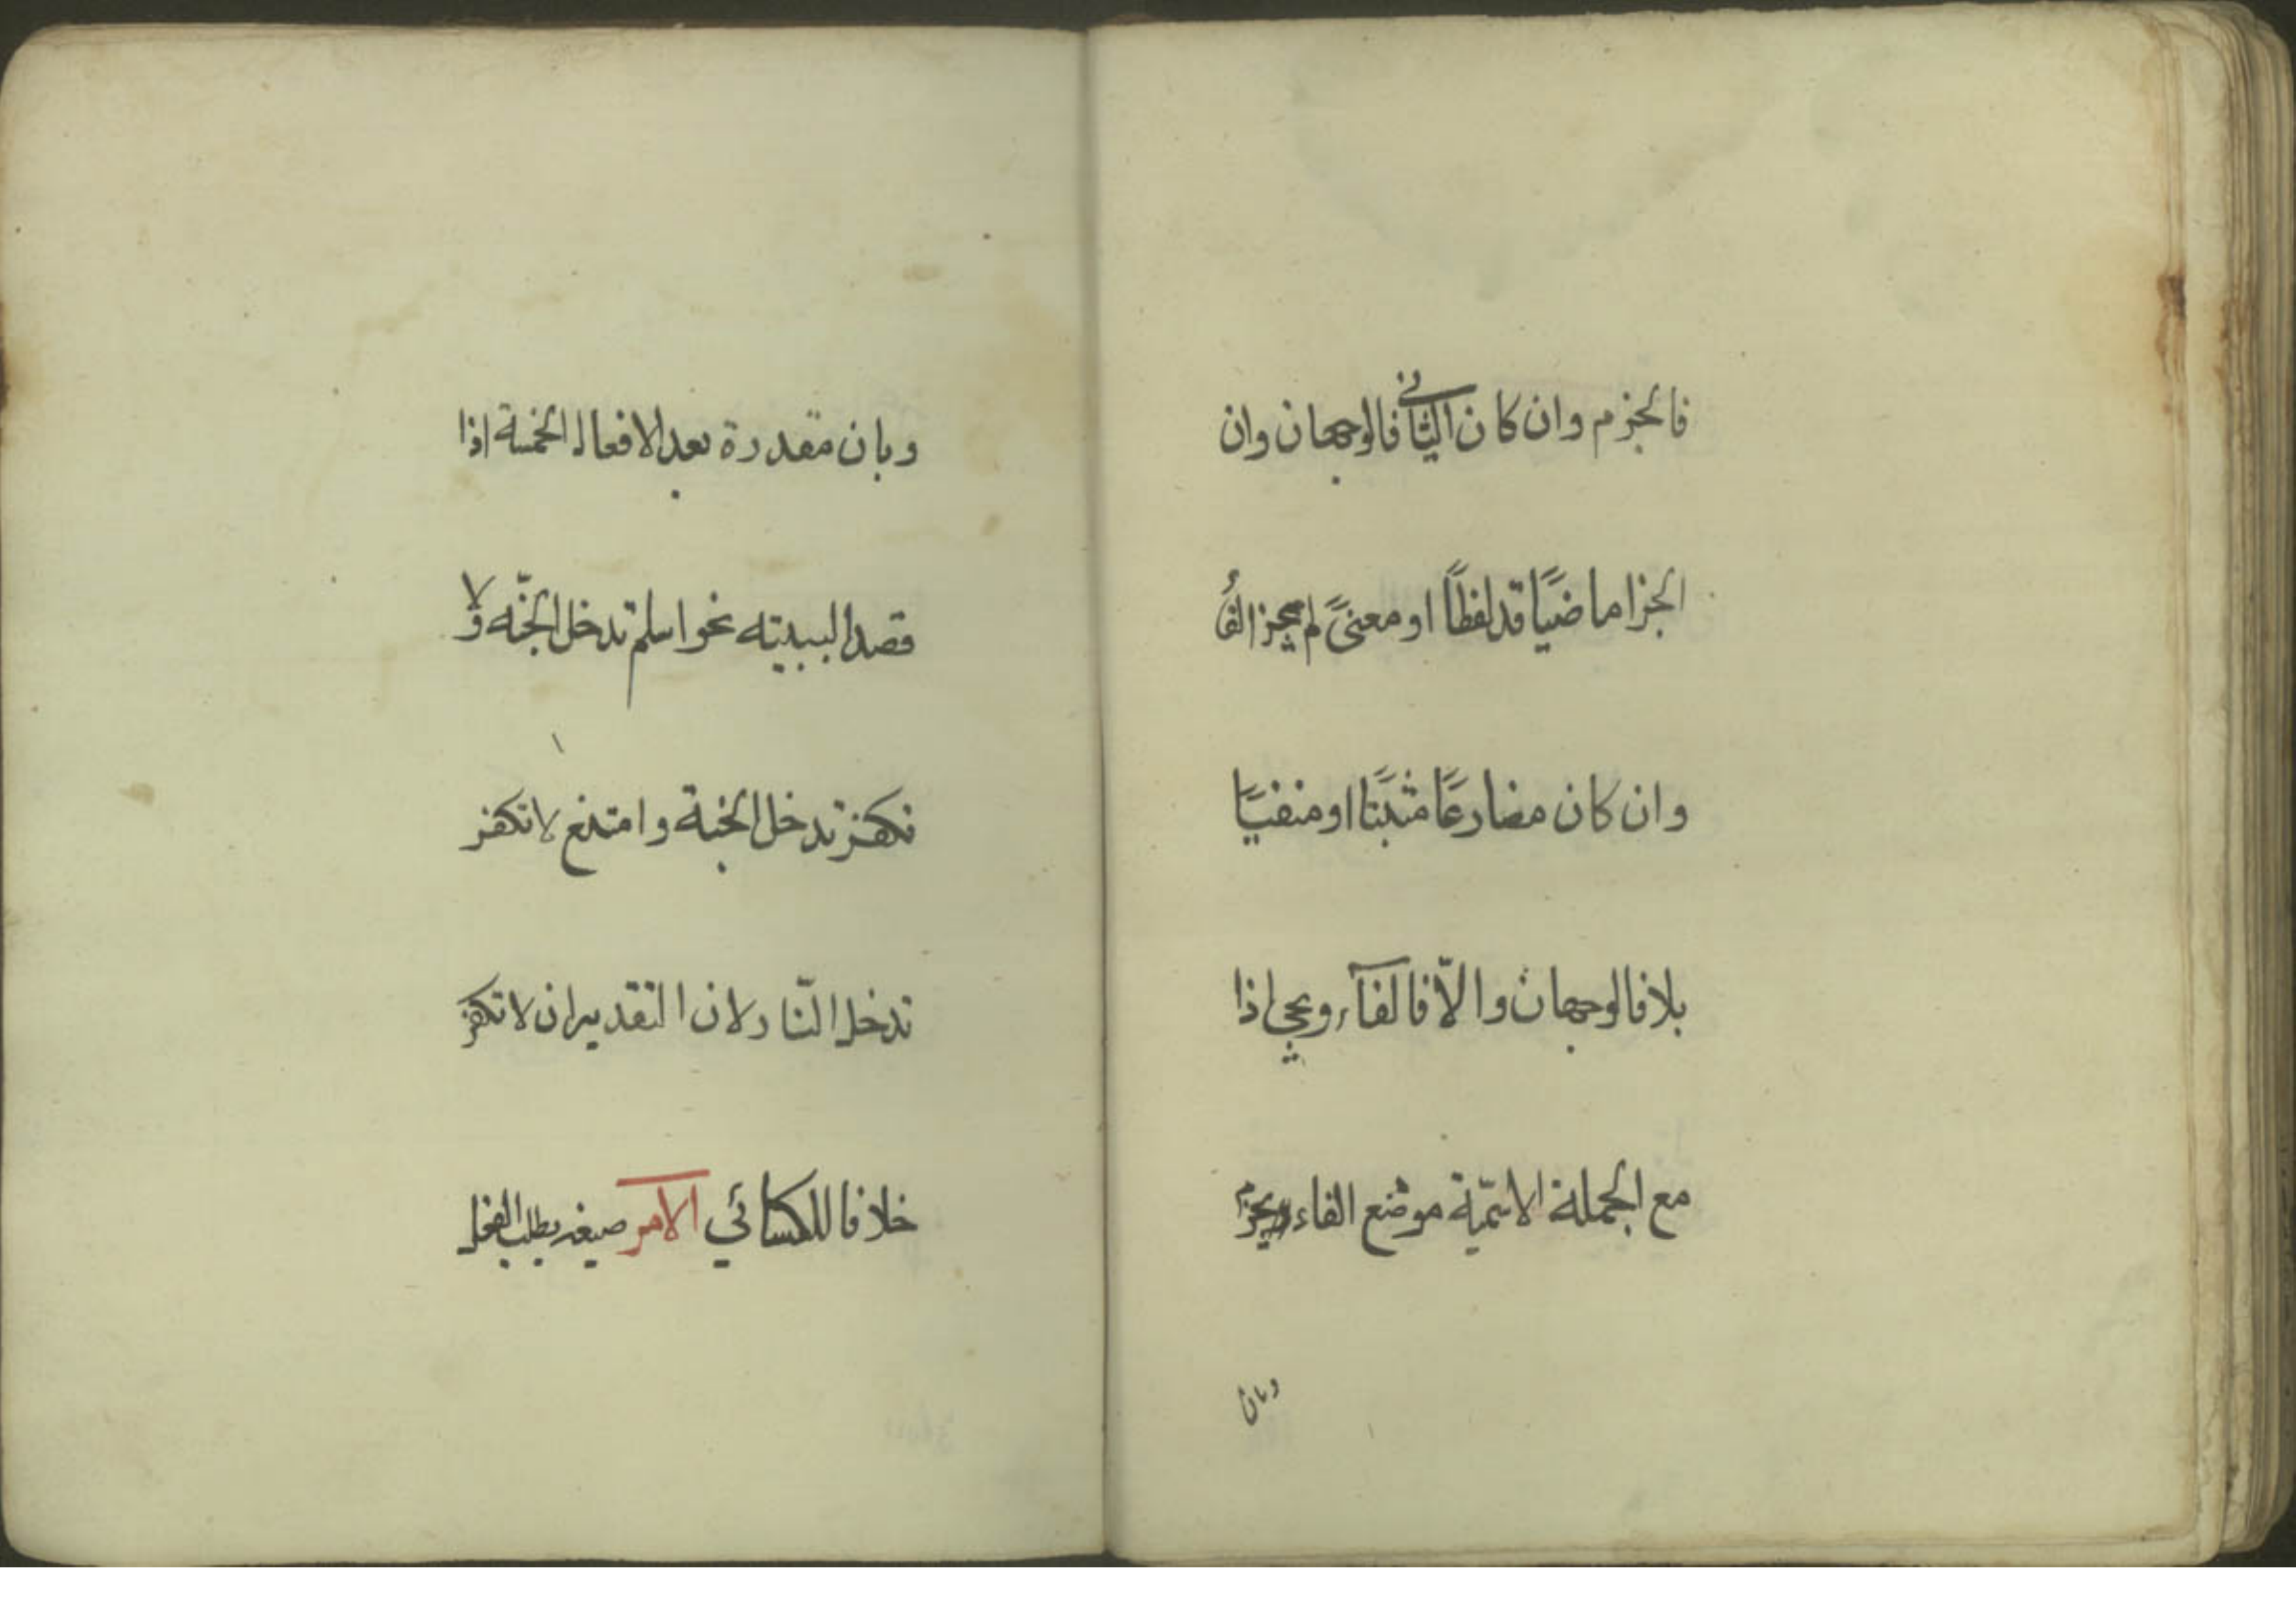 فالجزم وان كان الثاني فالوجهان وان
الجزا ماضيًا قد لفظًا او معنىً لم يجز الفأُ
وان كان مضارعًا مثبتًا او منفيًا
بلا فالوجهان والّا فالفآء ويجي اذا
مع الجملة الاسميّة موضع الفاء ويجزم
وبان
وبان مقدرة بعد الافعال الخمسة اذا
قصد السببيته نحو اسلم تدخل الجنّه ولا
تكفر تدخل الجنة وامتنع لا تكفر
تدخل النّار لان التقدير ان لا تكفر
خلافا للكسائي الامر صيغه يطلب الفعل